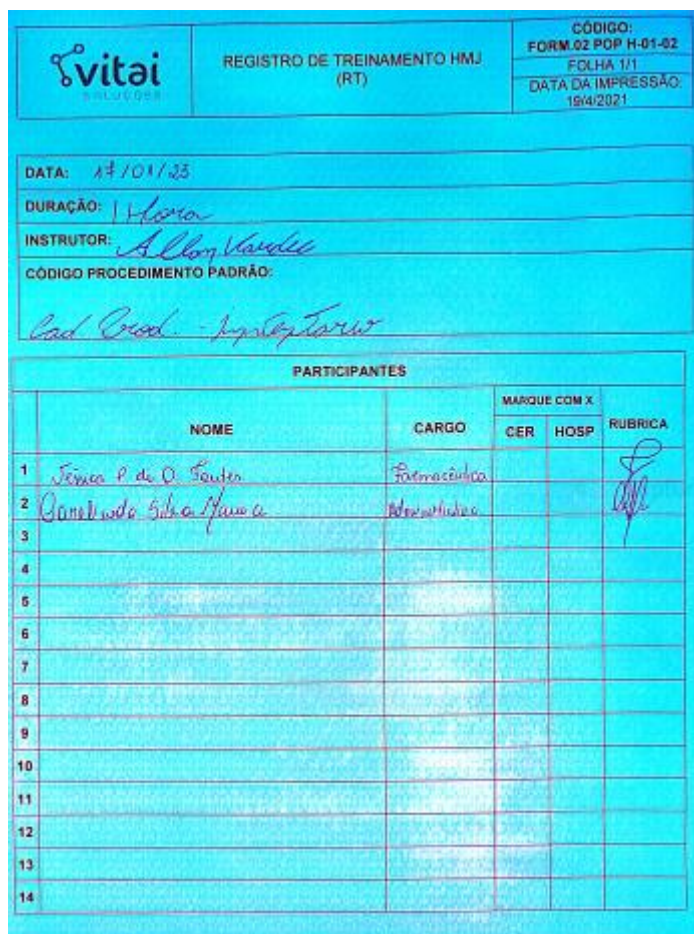 vitai
SOLUÇÕES
REGISTRO DE TREINAMENTO HMJ
(RT)
CÓDIGO:
FORM.02 POP H-01-02
FOLHA 1/1
DATA DA IMPRESSÃO:
19/4/2021
DATA: 17/01/23
DURAÇÃO: 1 Hora
INSTRUTOR: Allan Kardec
CÓDIGO PROCEDIMENTO PADRÃO:
Cad Prod. -
PARTICIPANTES
NOME CARGO MARQUE COM X RUBRICA
CER HOSP
1 P. de O. Farmacêutica
2 Silva
3
4
5
6
7
8
9
10
11
12
13
14